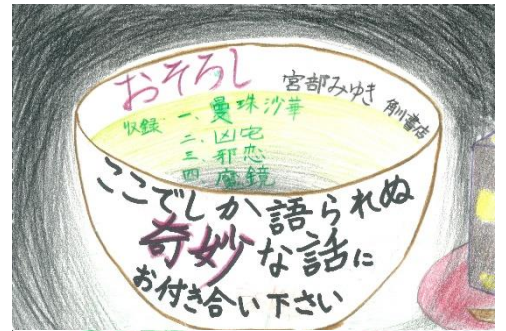 おそろし
宮部みゆき 角川書店
収録 一、曼珠沙華
二、凶宅
三、邪恋
四、魔鏡
ここでしか語られぬ
奇妙な話に
お付き合い下さい